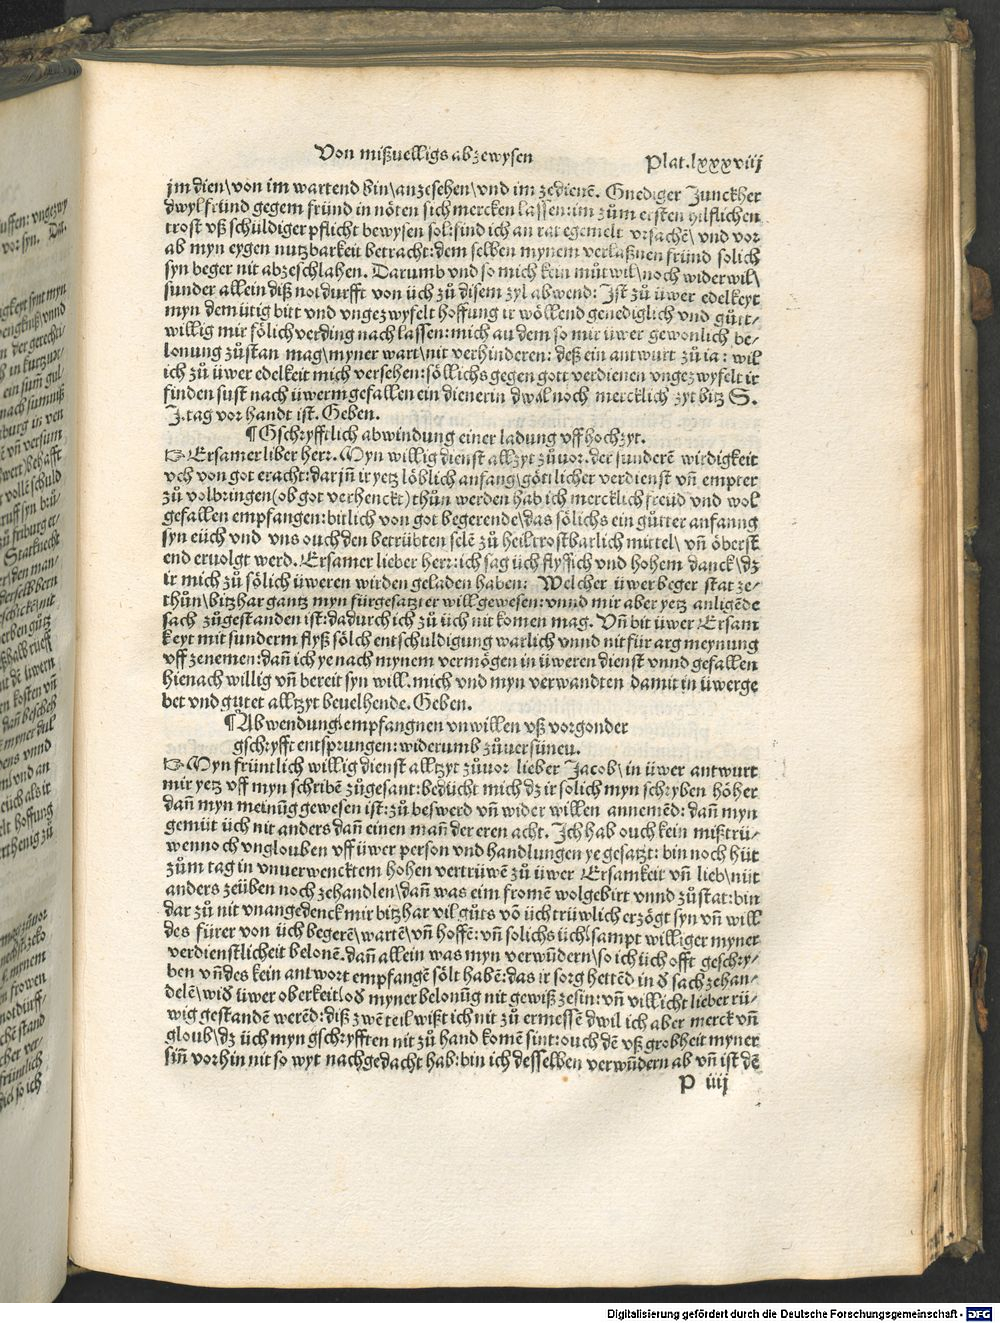 Von mißuelligs abzewysen
Plat.lxxxviij
jm dien\von im wartend bin\anzesehen\vnd im zedienē. Gnediger Junckher
dwyl fründ gegem fründ in nöten sich mercken lassen:im zům ersten hilflichen
trost vß schüldiger pflicht bewysen sol:sind ich an rat egemelt vrsachē\ vnd vor
ab myn eygen nutzbarkeit betracht:dem selben mynem verlaßnen fründ solich
syn beger nit abzeschlahen. Darumb vnd so mich kein můtwil\noch widerwil\
sunder allein diß notdurfft von üch zů disem zyl abwend: Ist zů üwer edelkeyt
myn demütig bitt vnd vngezwyfelt hoffung ir wöllend genediglich vnd gütt-
willig mir sölich verding nach lassen:mich au dem so mir üwer gewonlich be-
lonung zůstan mag\myner wart\nit verhinderen: deß ein antwurt zů ia: wil
ich zů üwer edelkeit mich versehen:söllichs gegen gott verdienen vngezwyfelt ir
finden sust nach üwerm gefallen ein dienerin dwal noch mercklich zyt bitz S.
J.tag vor handt ist. Geben.
¶ Gschryfftlich abwindung einer ladung vff hochzyt.
☞ Ersamer liber herr. Myn willig dienst allzyt zůvor. der sunderē wirdigkeit
vch von got eracht:dar jn̄ ir yetz löblich anfang\göttlicher verdienst vn̄ empter
zů volbringen(ob got verhenckt)thůn werden hab ich mercklich freüd vnd wol
gefallen empfangen:bitlich von got begerende\das sölichs ein gůtter anfanng
syn eüch vnd vns ouch den betrübten selē zů heil trostbarlich mittel\ vn̄ öberst
end ervolgt werd. Ersamer lieber herr:ich sag üch flyssich vnd hohem danck\dz
ir mich zů sölich üweren wirden geladen haben: Welcher üwer beger stat ze-
thůn\bitzhar gantz myn fürgesatzter will gewesen:vnnd mir aber yetz anligēde
sach zůgestanden ist:dadurch ich zů üch nit komen mag. Vn̄ bit üwer Ersam
keyt mit sunderm flyß sölch entschuldigung warlich vnnd nit für arg meynung
vff zenemen:dan̄ ich ye nach mynem vermögen in üweren dienst vnnd gefallen
hienach willig vn̄ bereit syn will. mich vnd myn verwandten damit in üwer ge
bet vnd gůtet alltzyt beuelhende. Geben.
¶ Abwendung\empfangnen vnwillen vß vorgonder
gschryfft entsprungen:widerumb zůversünen.
☞ Myn früntlich willig dienst alltzyt zůvor lieber Jacob\ in üwer antwurt
mir yetz vff myn schribē zůgesant:bedücht mich dz ir solich myn schryben höher
dan̄ myn meinūg gewesen ist:zů beswerd vn̄ wider willen annemēd: dan̄ myn
gemüt üch nit anders dan̄ einen man̄ der eren acht. Ich hab ouch kein mißtrü-
wen noch vnglouben vff üwer person vnd handlungen ye gesatzt: bin noch hüt
zům tag in unverwencktem hohen vertrüwē zů üwer Ersamkeit vn̄ lieb\nüt
anders zeüben noch zehandlen\dan̄ was eim fromē wolgebirt vnnd zůstat:bin
dar zů nit vnangedenck mir bitzhar vil gůts vō üch trüwlich erzögt syn vn̄ will
des fürer von üch begerē\wartē\vn̄ hoffē:vn̄ solichs üch\sampt williger myner
verdienstlicheit belonē.dan̄ allein was myn verwūdern\so ich üch offt geschry-
ben vn̄ des kein antwort empfangē sölt habē:das ir sorg hettēd in đ sach zehan-
delē\wiđ üwer oberkeit\ođ myner belonūg nit gewiß zesin:vn̄ villicht lieber rü-
wig gestandē werēd:diß zwē teil wißt ich nit zů ermessē dwil ich aber merck vn̄
gloub\dz üch myn gschryfften nit zů hand komē sint:ouch dē vß grobheit myner
sin̄ vorhin nit so wyt nachgedacht hab:bin ich desselben verwūdern ab vn̄ ist dē
P iiij
Digitalisierung gefördert durch die Deutsche Forschungsgemeinschaft - DFG